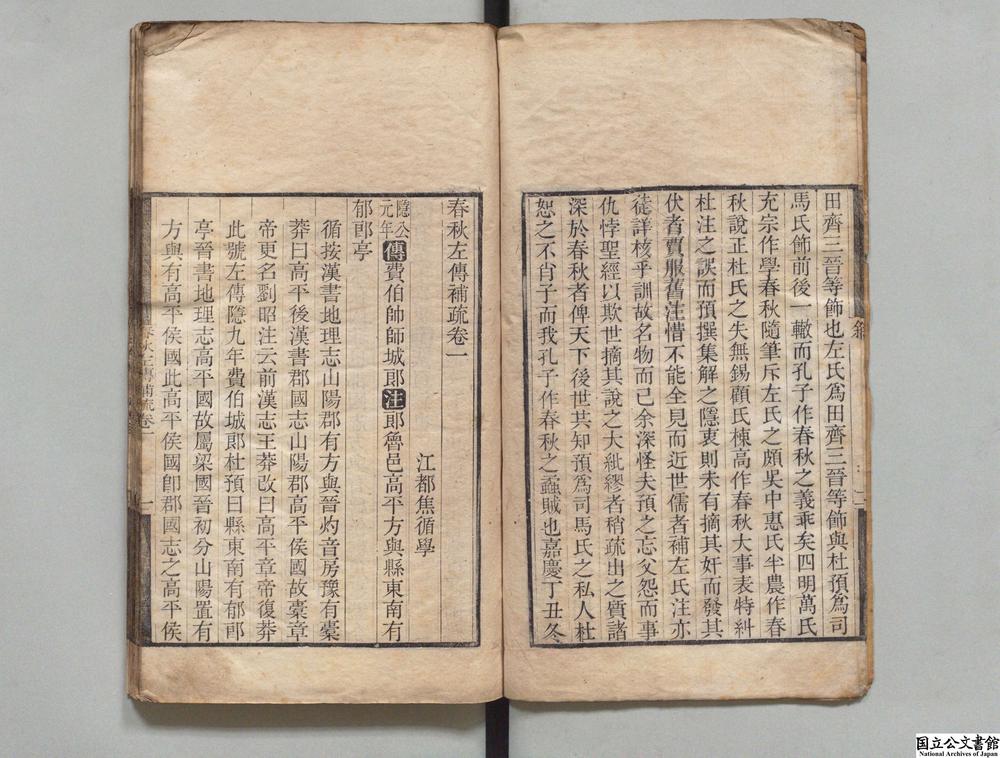 田齊三晉等飾也左氏爲田齊三晉等飾與杜預爲司
馬氏飾前後一轍而孔子作春秋之義乖矣四明萬氏
充宗作學春秋隨筆斥左氏之頗吳中惠氏半農作春
秋說正杜氏之失無錫顧氏棟高作春秋大事表特糾
杜注之誤而預撰集解之隱衷則未有摘其奸而發其
伏者賈服舊注惜不能全見而近世儒者補左氏注亦
徒詳核乎訓故名物而已余深怪夫預之忘父怨而事
仇悖聖經以欺世摘其說之大紕繆者稍疏出之質諸
深於春秋者俾天下後世共知預爲司馬氏之私人杜
恕之不肖子而我孔子作春秋之蟊賊也嘉慶丁丑冬
春秋左傳補疏卷一
江都焦循學
隱公元年傳費伯帥師城郎注郎魯邑高平方與縣東南有
郁郎亭
循按漢書地理志山陽郡有方與晉灼音房豫有橐
莽曰高平後漢書郡國志山陽郡高平侯國故橐章
帝更名劉昭注云前漢志王莽改曰高平章帝復莽
此號左傳隱九年費伯城郎杜預曰縣東南有郁郎
亭晉書地理志高平國故屬梁國晉初分山陽置有
方與有高平侯國此高平侯國卽郡國志之高平侯
春秋左傳補疏卷一
一
国立公文書館
National Archives of Japan